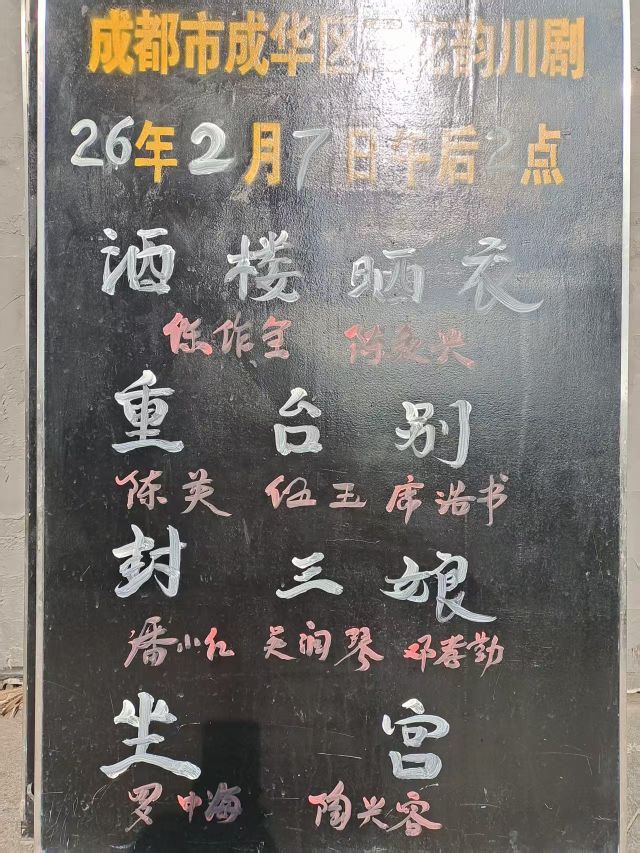 成都市成华区三花韵川剧
26年2月7日午后2点
酒楼晒衣
任作全 陈永兴
重台别
陈英 伍玉 席浩书
封三娘
潘小仁 吴润琴 邓孝勤
坐宫
罗中海 陶兴容